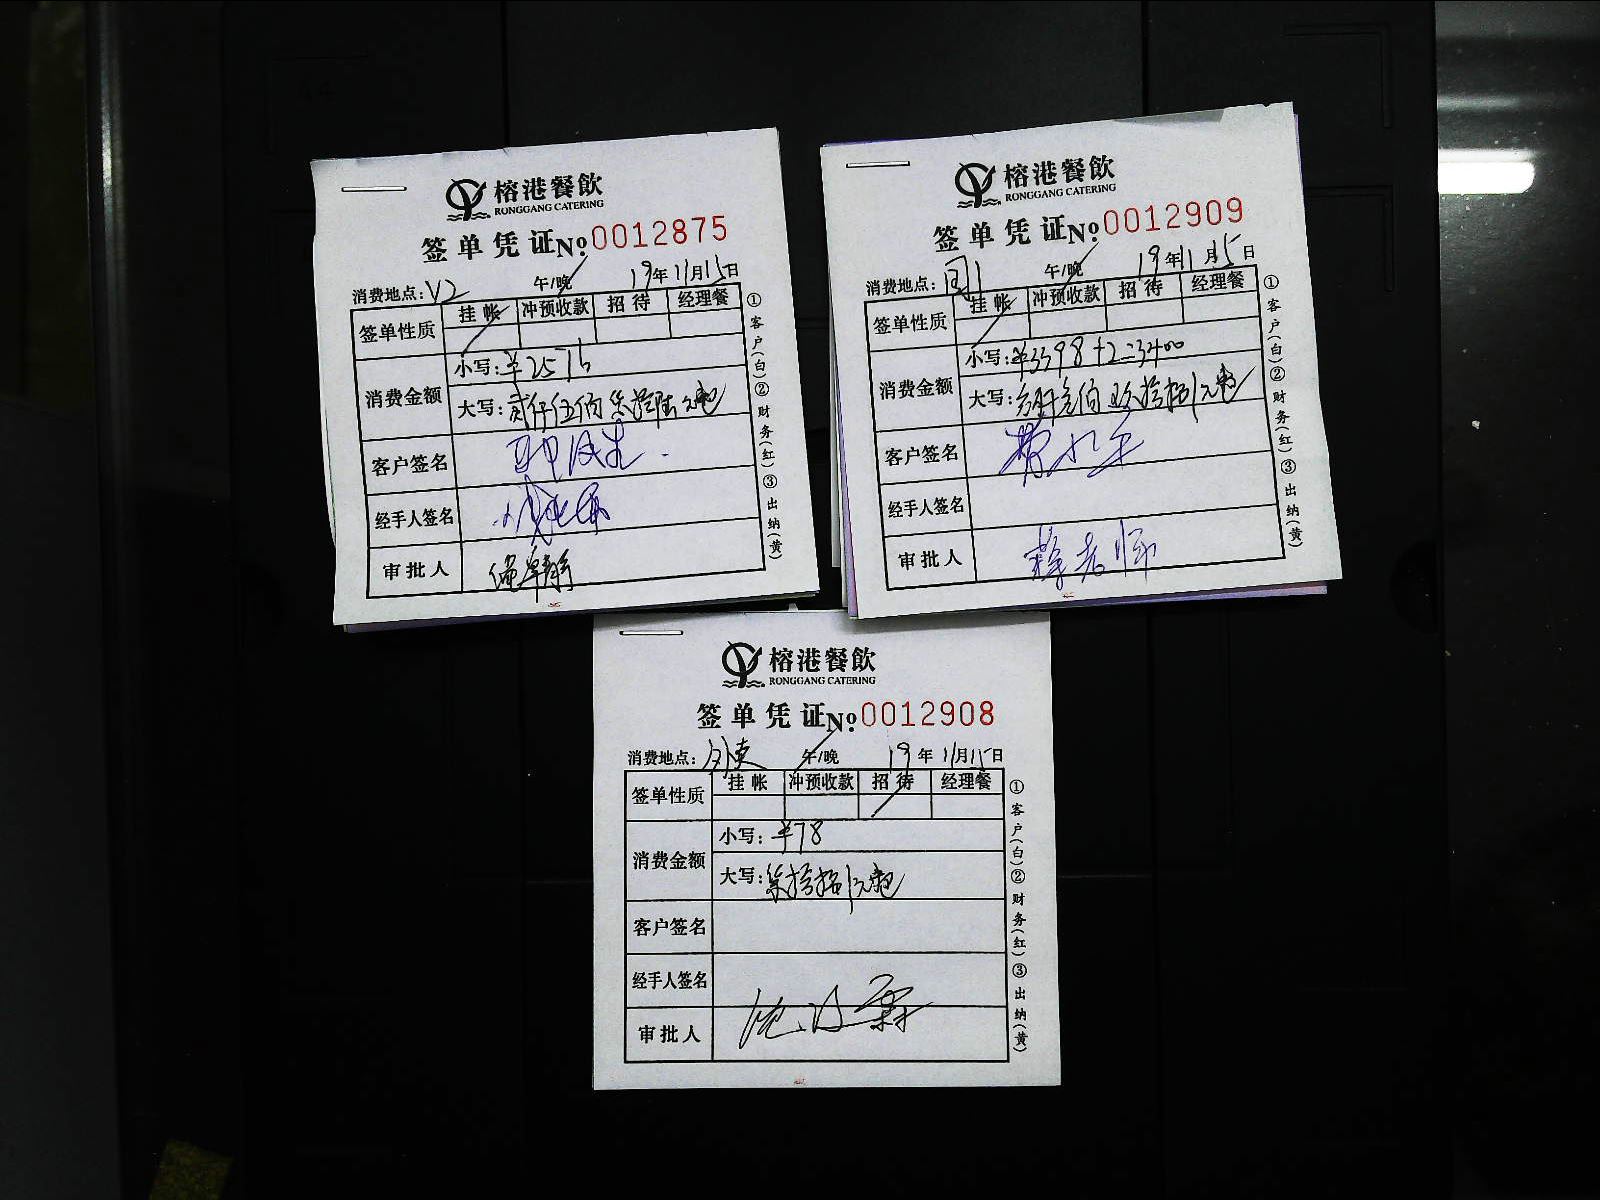 榕港餐飲
RONGGANG CATERING
签单凭证 No.0012875
消费地点：V2 午/晚 19年11月15日
签单性质 挂帐 冲预收款 招待 经理餐
消费金额 小写：￥2576
大写：贰仟伍佰柒拾陆元整
客户签名
经手人签名
审批人
①客户(白)②财务(红)③出纳(黄)
榕港餐飲
RONGGANG CATERING
签单凭证 No.0012909
消费地点： 午/晚 19年11月15日
签单性质 挂帐 冲预收款 招待 经理餐
消费金额 小写：￥3398+2=3400
大写：叁仟叁佰玖拾捌元整
客户签名
经手人签名
审批人
①客户(白)②财务(红)③出纳(黄)
榕港餐飲
RONGGANG CATERING
签单凭证 No.0012908
消费地点：外卖 午/晚 19年11月15日
签单性质 挂帐 冲预收款 招待 经理餐
消费金额 小写：￥78
大写：柒拾捌元整
客户签名
经手人签名
审批人
①客户(白)②财务(红)③出纳(黄)